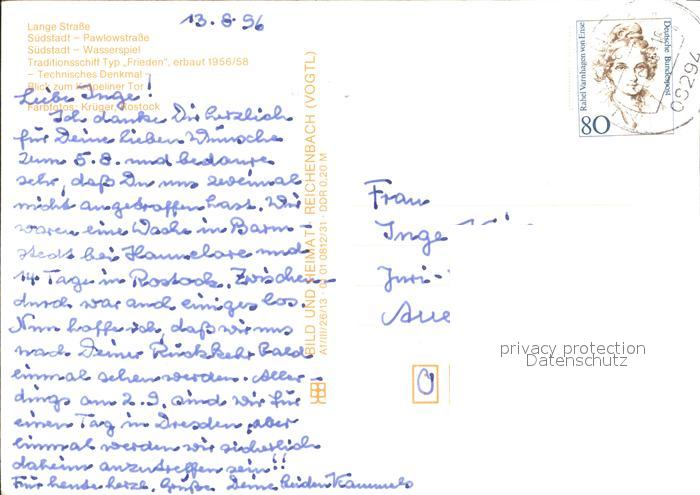 13.8.96
Lange Straße
Südstadt – Pawlowstraße
Südstadt – Wasserspiel
Traditionsschiff Typ „Frieden", erbaut 1956/58
– Technisches Denkmal –
Blick zum Kröpeliner Tor
Farbfotos: Krüger, Rostock
Liebe Inge!
Ich danke Dir herzlich
für Deine lieben Wünsche
zum 5.8. und bedaure
sehr, daß Du uns zweimal
nicht angetroffen hast. Wir
waren eine Woche in Barm-
stedt bei Hannelore und
14 Tage in Rostock. Zwischen
durch war auch einiges los.
Nun hoffe ich, daß wir uns
nach Deiner Rückkehr bald
einmal sehen werden. Aller-
dings am 2.9. sind wir für
einen Tag in Dresden, aber
einmal werden wir sicherlich
daheim anzutreffen sein!!
Für heute herzl. Grüße Deine beiden Kammels
BILD UND HEIMAT REICHENBACH (VOGTL)
A1/III/26/13 01 01 0812/31 · DDR 0,20 M
Rahel Varnhagen von Ense
Deutsche Bundespost
80
Frau
Inge
Juri-
Aue
0
privacy protection
Datenschutz